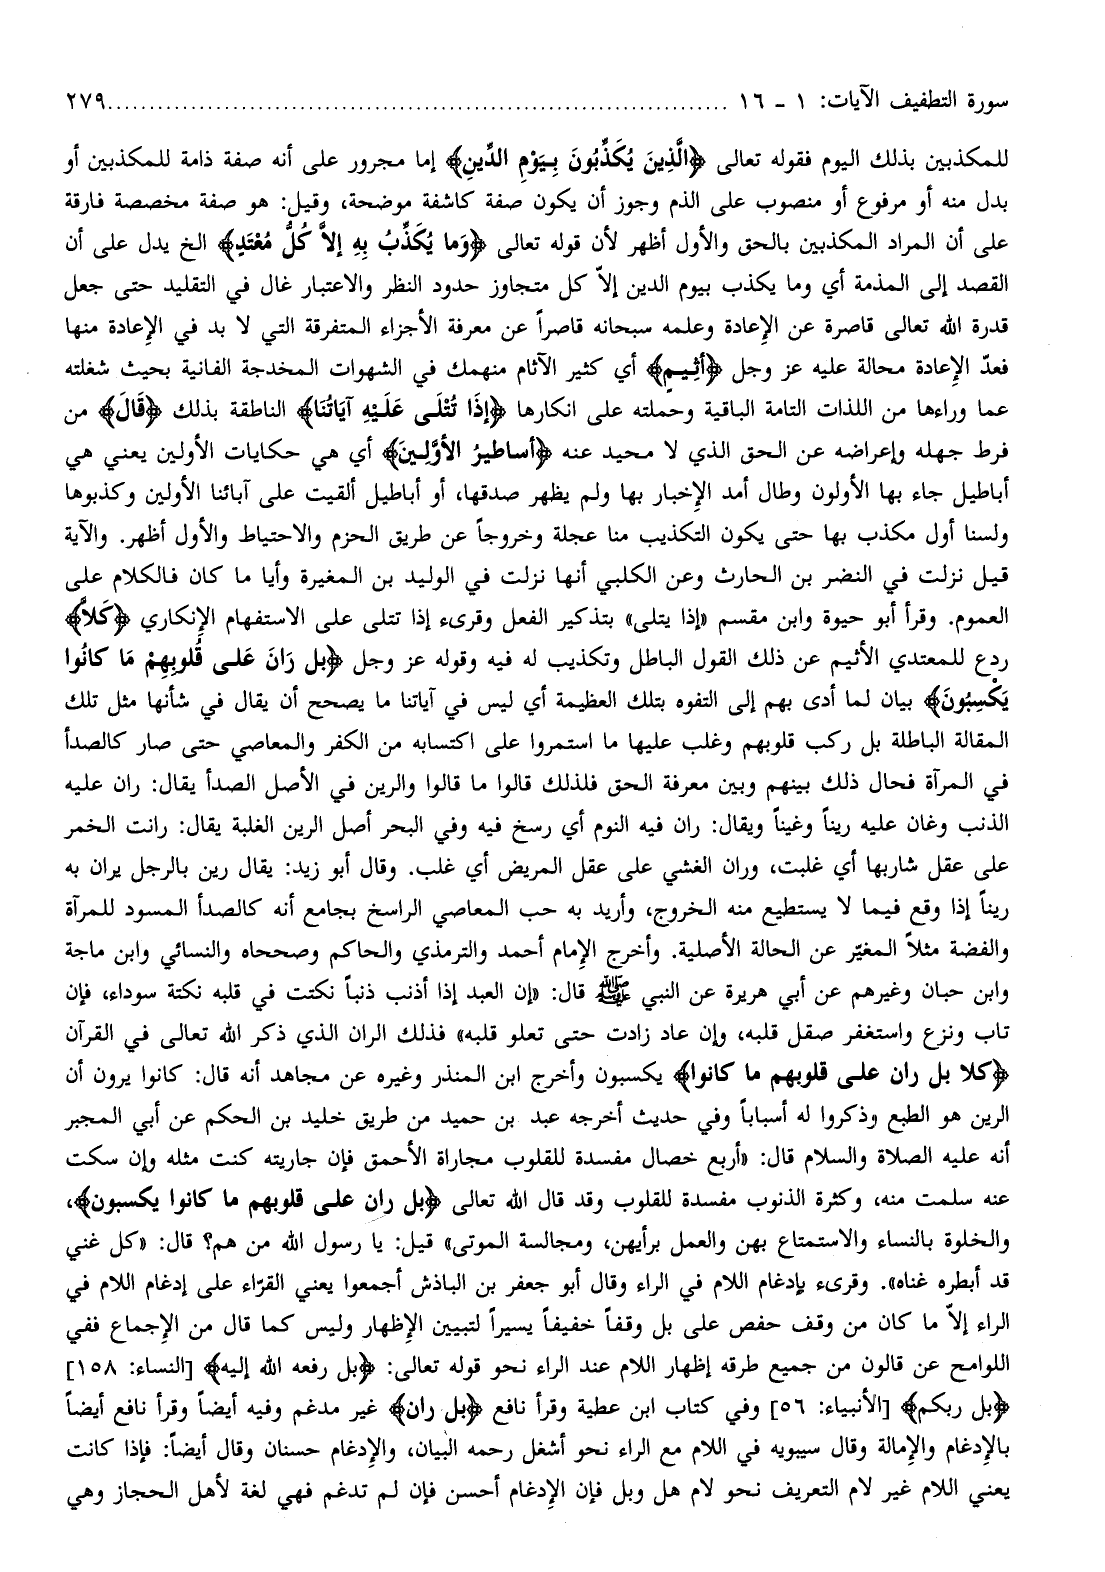 سورة التطفيف الآيات: ١ - ١٦ ........................................................................... ٢٧٩
للمكذبين بذلك اليوم فقوله تعالى ﴿الَّذِينَ يُكَذِّبُونَ بِيَوْمِ الدِّينِ﴾ إما مجرور على أنه صفة ذامة للمكذبين أو
بدل منه أو مرفوع أو منصوب على الذم وجوز أن يكون صفة كاشفة موضحة، وقيل: هو صفة مخصصة فارقة
على أن المراد المكذبين بالحق والأول أظهر لأن قوله تعالى ﴿وَما يُكَذِّبُ بِهِ إلاَّ كُلُّ مُعْتَدٍ﴾ الخ يدل على أن
القصد إلى المذمة أي وما يكذب بيوم الدين إلاّ كل متجاوز حدود النظر والاعتبار غال في التقليد حتى جعل
قدرة الله تعالى قاصرة عن الإعادة وعلمه سبحانه قاصراً عن معرفة الأجزاء المتفرقة التي لا بد في الإعادة منها
فعدّ الإعادة محالة عليه عز وجل ﴿أثِيمٍ﴾ أي كثير الآثام منهمك في الشهوات المخدجة الفانية بحيث شغلته
عما وراءها من اللذات التامة الباقية وحملته على انكارها ﴿إذَا تُتْلَى عَلَيْهِ آيَاتُنَا﴾ الناطقة بذلك ﴿قَالَ﴾ من
فرط جهله وإعراضه عن الحق الذي لا محيد عنه ﴿أساطيرُ الأوَّلِينَ﴾ أي هي حكايات الأولين يعني هي
أباطيل جاء بها الأولون وطال أمد الإخبار بها ولم يظهر صدقها، أو أباطيل ألقيت على آبائنا الأولين وكذبوها
ولسنا أول مكذب بها حتى يكون التكذيب منا عجلة وخروجاً عن طريق الحزم والاحتياط والأول أظهر. والآية
قيل نزلت في النضر بن الحارث وعن الكلبي أنها نزلت في الوليد بن المغيرة وأيا ما كان فالكلام على
العموم. وقرأ أبو حيوة وابن مقسم «إذا يتلى» بتذكير الفعل وقرىء إذا تتلى على الاستفهام الإنكاري ﴿كَلاَّ﴾
ردع للمعتدي الأثيم عن ذلك القول الباطل وتكذيب له فيه وقوله عز وجل ﴿بل رَانَ عَلى قُلوبِهِمْ مَا كانُوا
يَكْسِبُونَ﴾ بيان لما أدى بهم إلى التفوه بتلك العظيمة أي ليس في آياتنا ما يصحح أن يقال في شأنها مثل تلك
المقالة الباطلة بل ركب قلوبهم وغلب عليها ما استمروا على اكتسابه من الكفر والمعاصي حتى صار كالصدأ
في المرآة فحال ذلك بينهم وبين معرفة الحق فلذلك قالوا ما قالوا والرين في الأصل الصدأ يقال: ران عليه
الذنب وغان عليه ريناً وغيناً ويقال: ران فيه النوم أي رسخ فيه وفي البحر أصل الرين الغلبة يقال: رانت الخمر
على عقل شاربها أي غلبت، وران الغشي على عقل المريض أي غلب. وقال أبو زيد: يقال رين بالرجل يران به
ريناً إذا وقع فيما لا يستطيع منه الخروج، وأريد به حب المعاصي الراسخ بجامع أنه كالصدأ المسود للمرآة
والفضة مثلاً المغيّر عن الحالة الأصلية. وأخرج الإمام أحمد والترمذي والحاكم وصححاه والنسائي وابن ماجة
وابن حبان وغيرهم عن أبي هريرة عن النبي ﷺ قال: «إن العبد إذا أذنب ذنباً نكتت في قلبه نكتة سوداء، فإن
تاب ونزع واستغفر صقل قلبه، وإن عاد زادت حتى تعلو قلبه» فذلك الران الذي ذكر الله تعالى في القرآن
﴿كلا بل ران على قلوبهم ما كانوا﴾ يكسبون وأخرج ابن المنذر وغيره عن مجاهد أنه قال: كانوا يرون أن
الرين هو الطبع وذكروا له أسباباً وفي حديث أخرجه عبد بن حميد من طريق خليد بن الحكم عن أبي المجبر
أنه عليه الصلاة والسلام قال: «أربع خصال مفسدة للقلوب مجاراة الأحمق فإن جاريته كنت مثله وإن سكت
عنه سلمت منه، وكثرة الذنوب مفسدة للقلوب وقد قال الله تعالى ﴿بل ران على قلوبهم ما كانوا يكسبون﴾،
والخلوة بالنساء والاستمتاع بهن والعمل برأيهن، ومجالسة الموتى» قيل: يا رسول الله من هم؟ قال: «كل غني
قد أبطره غناه». وقرىء بإدغام اللام في الراء وقال أبو جعفر بن الباذش أجمعوا يعني القرّاء على إدغام اللام في
الراء إلاّ ما كان من وقف حفص على بل وقفاً خفيفاً يسيراً لتبيين الإظهار وليس كما قال من الإجماع ففي
اللوامح عن قالون من جميع طرقه إظهار اللام عند الراء نحو قوله تعالى: ﴿بل رفعه الله إليه﴾ [النساء: ١٥٨]
﴿بل ربكم﴾ [الأنبياء: ٥٦] وفي كتاب ابن عطية وقرأ نافع ﴿بل ران﴾ غير مدغم وفيه أيضاً وقرأ نافع أيضاً
بالإدغام والإمالة وقال سيبويه في اللام مع الراء نحو أشغل رحمه البيان، والإدغام حسنان وقال أيضاً: فإذا كانت
يعني اللام غير لام التعريف نحو لام هل وبل فإن الإدغام أحسن فإن لم تدغم فهي لغة لأهل الحجاز وهي